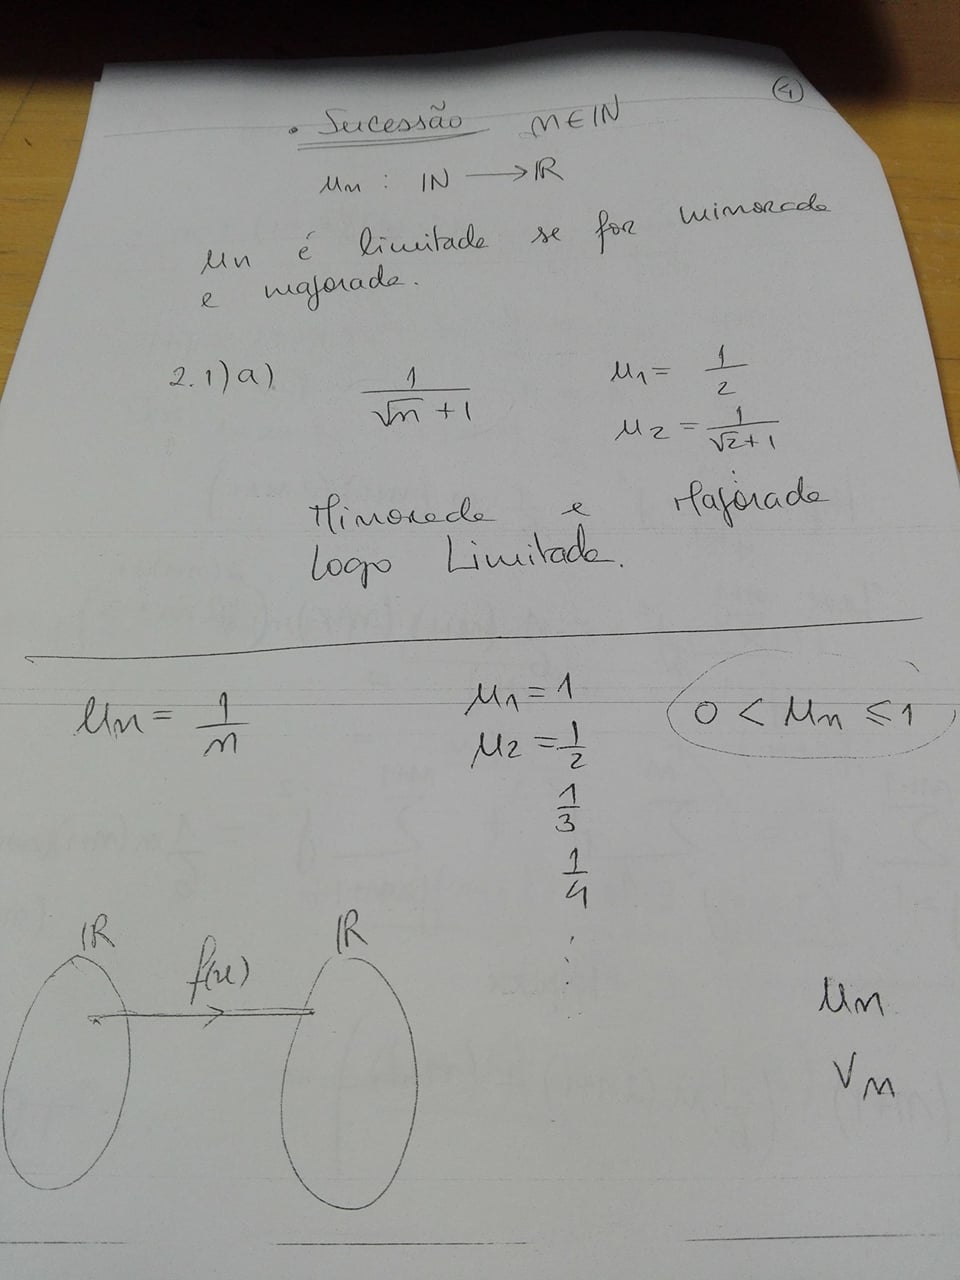 4
• Sucessão n ∈ IN
un : IN → IR
un é limitada se for minorada
e majorada.
2.1) a) 1/(√n + 1) u1 = 1/2
u2 = 1/(√2 + 1)
Minorada e Majorada
Logo Limitada.
un = 1/n u1 = 1 0 < un ≤ 1
u2 = 1/2
1/3
1/4
⋮
IR f(x) IR
un
vn